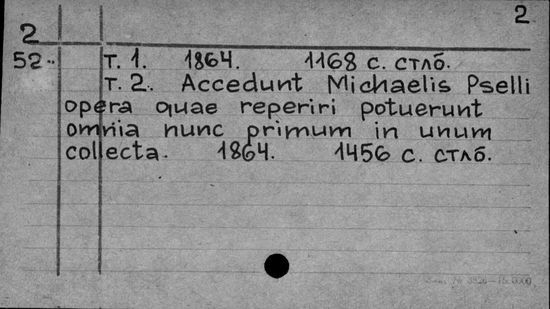 2
2
52.. т. 1. 1864. 1168 с. стлб.
т. 2. Accedunt Michaelis Pselli
opera quae reperiri potuerunt
omnia nunc primum in unum
collecta. 1864. 1456 с. стлб.